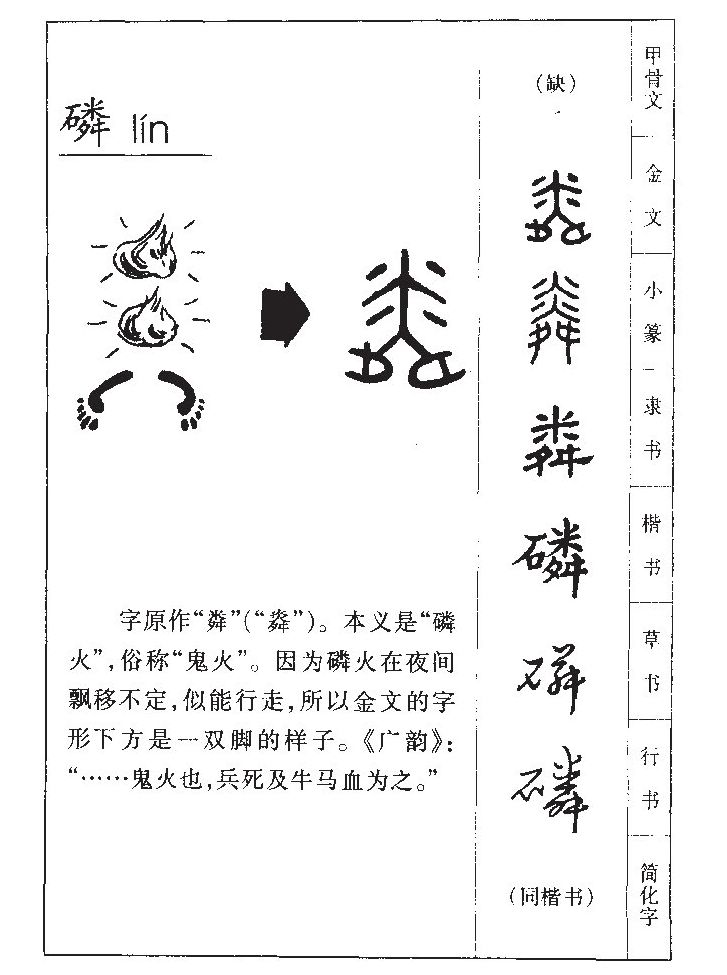 磷 lín
字原作“粦”(“㷠”)。本义是“磷
火”,俗称“鬼火”。因为磷火在夜间
飘移不定,似能行走,所以金文的字
形下方是一双脚的样子。《广韵》:
“……鬼火也,兵死及牛马血为之。”
(缺)
粦
磷
磷
磷
(同楷书)
甲骨文
金文
小篆
隶书
楷书
草书
行书
简化字